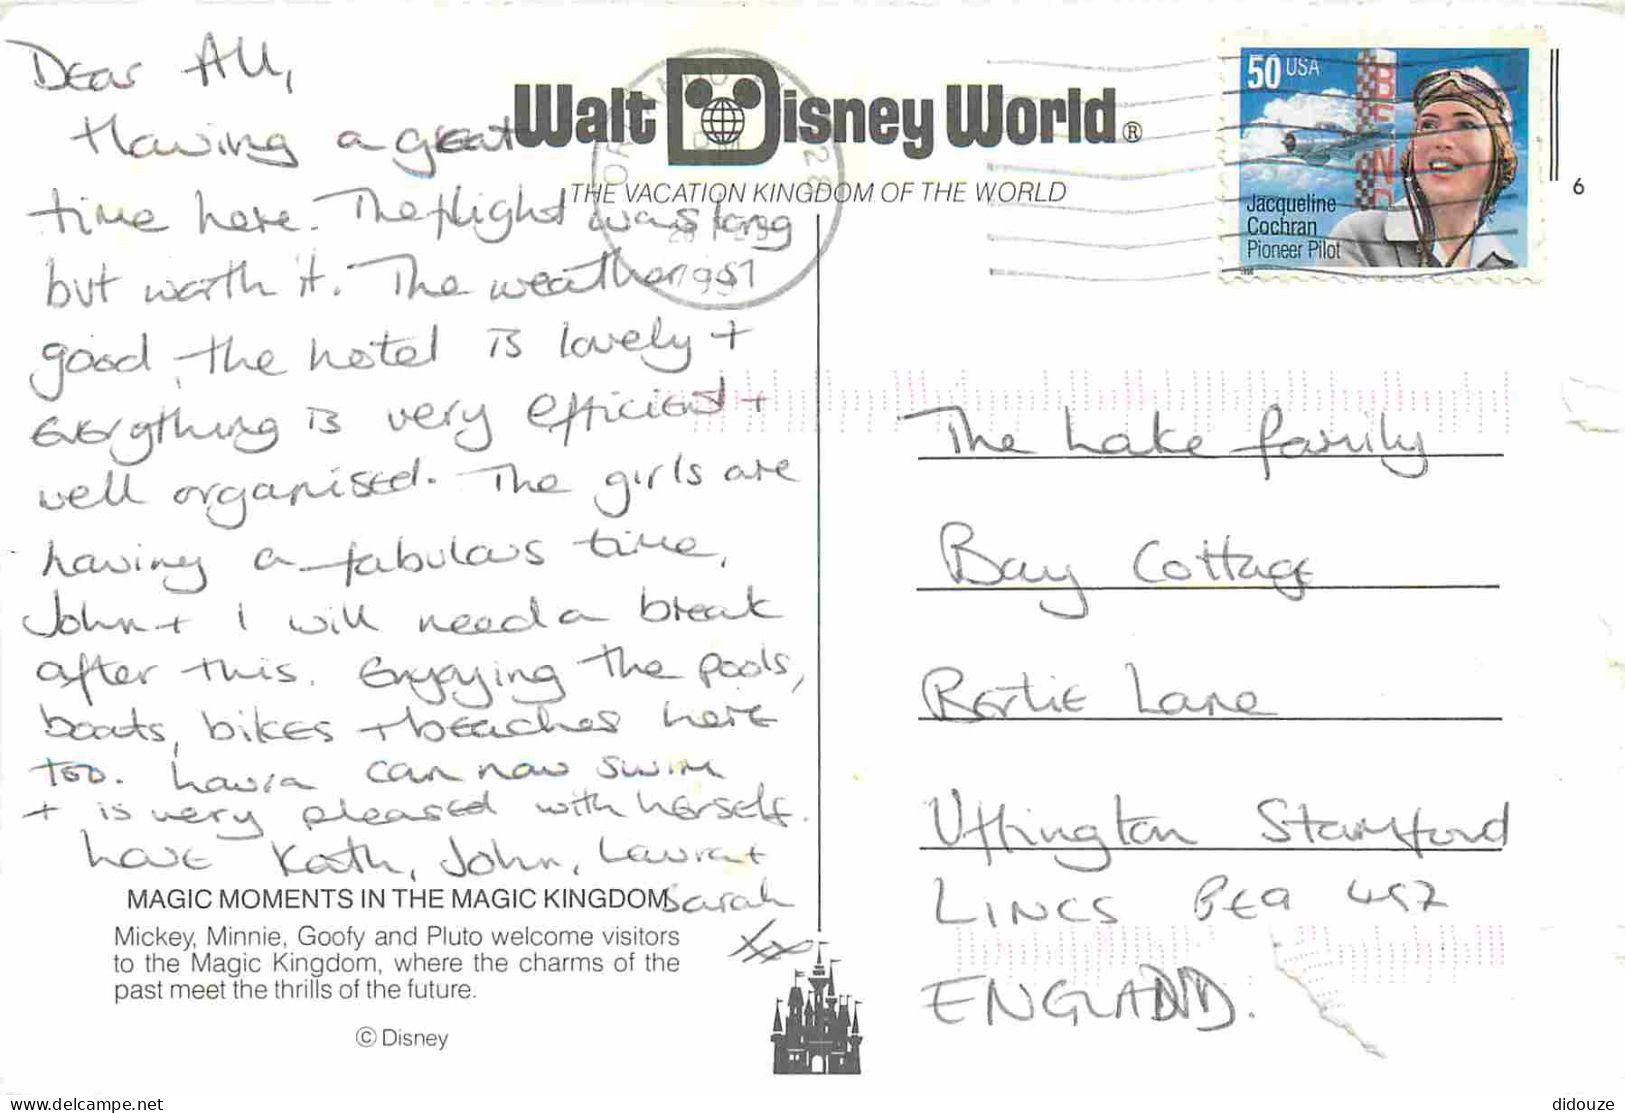 Dear All,
Having a great
time here. The flight was long
but worth it. The weather is
good, the hotel is lovely +
everything is very efficient +
well organised. The girls are
having a fabulous time,
John + I will need a break
after this. Enjoying the pools,
boats, bikes + beaches here
too. Laura can now swim
+ is very pleased with herself.
Love Kath, John, Laura +
Sarah
xxx
Walt Disney World®
THE VACATION KINGDOM OF THE WORLD
50 USA
BENDIX
Jacqueline
Cochran
Pioneer Pilot
6
28
1997
The Lake family
Bay Cottage
Bertie Lane
Uffington Stamford
LINCS PE9 4SZ
ENGLAND.
MAGIC MOMENTS IN THE MAGIC KINGDOM
Mickey, Minnie, Goofy and Pluto welcome visitors
to the Magic Kingdom, where the charms of the
past meet the thrills of the future.
© Disney
www.delcampe.net
didouze